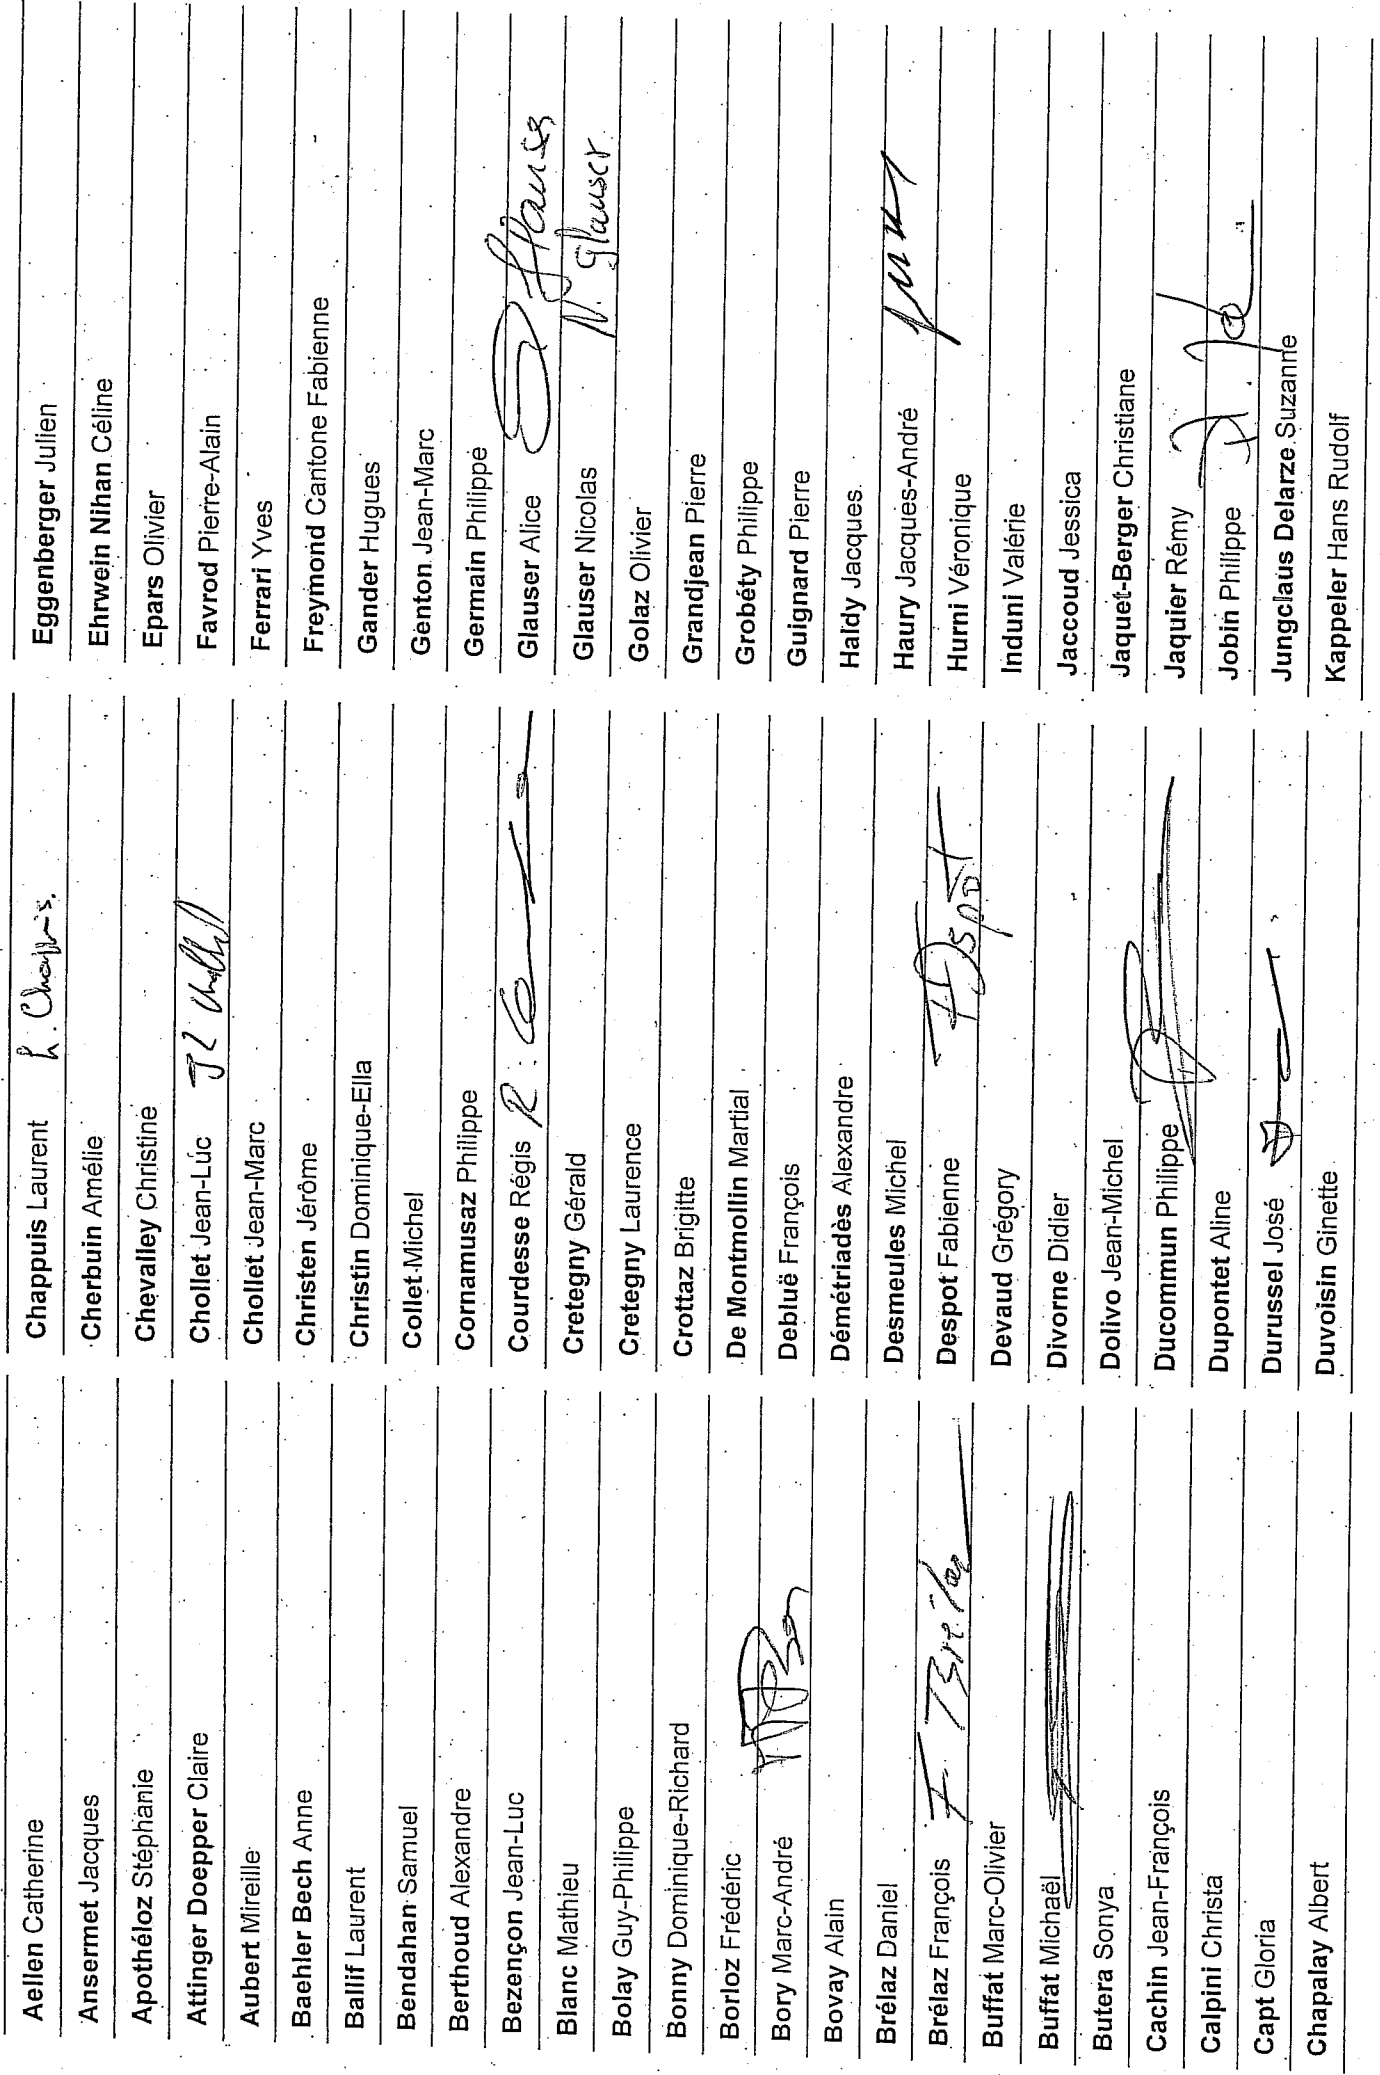 Aellen Catherine
Ansermet Jacques
Apothéloz Stéphanie
Attinger Doepper Claire
Aubert Mireille
Baehler Bech Anne
Ballif Laurent
Bendahan Samuel
Berthoud Alexandre
Bezençon Jean-Luc
Blanc Mathieu
Bolay Guy-Philippe
Bonny Dominique-Richard
Borloz Frédéric
Bory Marc-André
Bovay Alain
Brélaz Daniel
Brélaz François F. Brélaz
Buffat Marc-Olivier
Buffat Michaël
Butera Sonya
Cachin Jean-François
Calpini Christa
Capt Gloria
Chapalay Albert
Chappuis Laurent L. Chappuis
Cherbuin Amélie
Chevalley Christine
Chollet Jean-Luc JL Chollet
Chollet Jean-Marc
Christen Jérôme
Christin Dominique-Ella
Collet Michel
Cornamusaz Philippe
Courdesse Régis R.
Cretegny Gérald
Cretegny Laurence
Crottaz Brigitte
De Montmollin Martial
Debluë François
Démétriadès Alexandre
Desmeules Michel
Despot Fabienne F Despot
Devaud Grégory
Divorne Didier
Dolivo Jean-Michel
Ducommun Philippe
Dupontet Aline
Durussel José
Duvoisin Ginette
Eggenberger Julien
Ehrwein Nihan Céline
Epars Olivier
Favrod Pierre-Alain
Ferrari Yves
Freymond Cantone Fabienne
Gander Hugues
Genton Jean-Marc
Germain Philippe
Glauser Alice Glauser
Glauser Nicolas N. Glauser
Golaz Olivier
Grandjean Pierre
Grobéty Philippe
Guignard Pierre
Haldy Jacques
Haury Jacques-André
Hurni Véronique
Induni Valérie
Jaccoud Jessica
Jaquet-Berger Christiane
Jaquier Rémy
Jobin Philippe
Jungclaus Delarze Suzanne
Kappeler Hans Rudolf